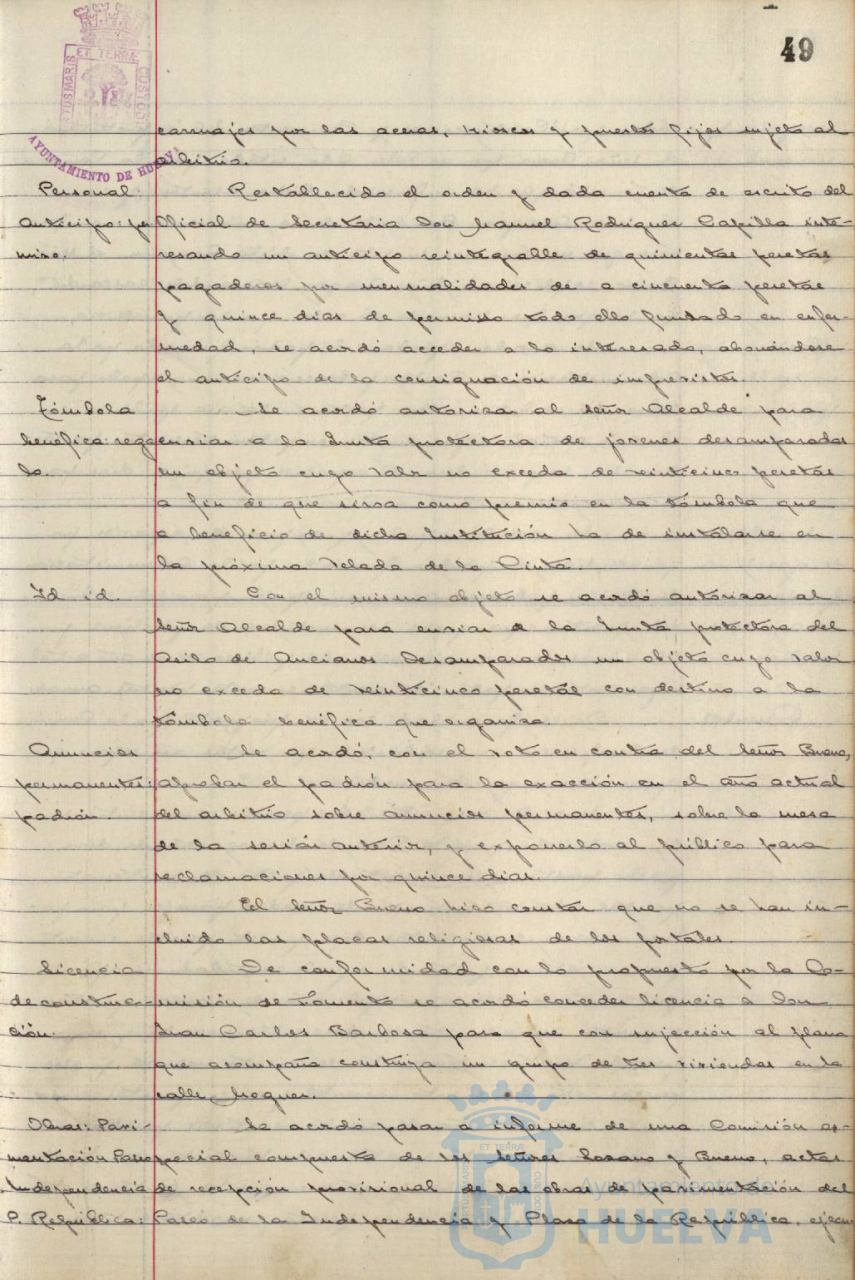 49
PORTUS MARIS ET TERRÆ CUSTODIA
AYUNTAMIENTO DE HUELVA
carruajes por las aceras, kioscos y puestos fijos sujeto al
arbitrio.
Personal: Restablecido el orden y dada cuenta de escrito del
anticipo: per Oficial de Secretaria Don Manuel Rodriguez Capilla inte-
miso. resando un anticipo reintegrable de quinientas pesetas
pagaderos por mensualidades de a cincuenta pesetas
y quince dias de permiso todo ello fundado en enfer-
medad, se acordó acceder a lo interesado, abonándose
el anticipo de la consignación de imprevistos.
Tómbola Se acordó autorizar al señor Alcalde para
benéfica: rega enviar a la Junta protectora de jovenes desamparados
lo. un objeto cuyo valor no exceda de veinticinco pesetas
a fin de que sirva como premio en la tómbola que
a beneficio de dicha Institución ha de instalarse en
la próxima Velada de la Cinta.
Id id. Con el mismo objeto se acordó autorizar al
señor Alcalde para enviar a la Junta protectora del
Asilo de Ancianos Desamparados un objeto cuyo valor
no exceda de veinticinco pesetas con destino a la
tómbola benéfica que organiza.
Anuncios Se acordó, con el voto en contra del señor Bueno,
permanentes: aprobar el padrón para la exacción en el año actual
padrón. del arbitrio sobre anuncios permanentes, sobre la mesa
de la sesión anterior, y exponerlo al público para
reclamaciones por quince dias.
El señor Bueno hizo constar que no se han in-
cluido las placas religiosas de los portales.
Licencia De conformidad con lo propuesto por la Co-
de construc- misión de Fomento se acordó conceder licencia a Don
ción. Juan Carlos Barbosa para que con sujección al plano
que acompaña construya un grupo de tres viviendas en la
calle Moguer.
Obras: Pavi- Se acordó pasar a informe de una Comisión es-
mentación Paseo pecial compuesta de los señores Lozano y Bueno, actas
Independencia de recepción provisional de las obras de pavimentación del
P. República: Paseo de la Independencia y Plaza de la República, ejecu-
Ayuntamiento de
HUELVA